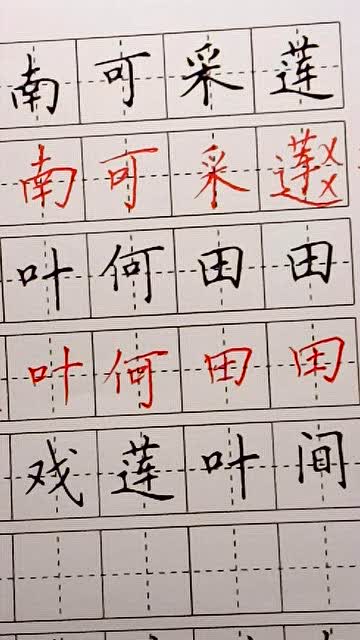 南可采莲
南可采莲xx
叶何田田
叶何田田
戏莲叶间